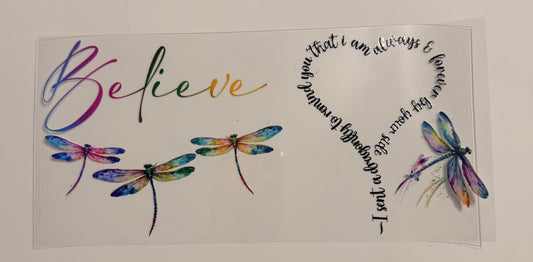 Believe
~I sent a dragonfly to remind you that i am always & forever by your side